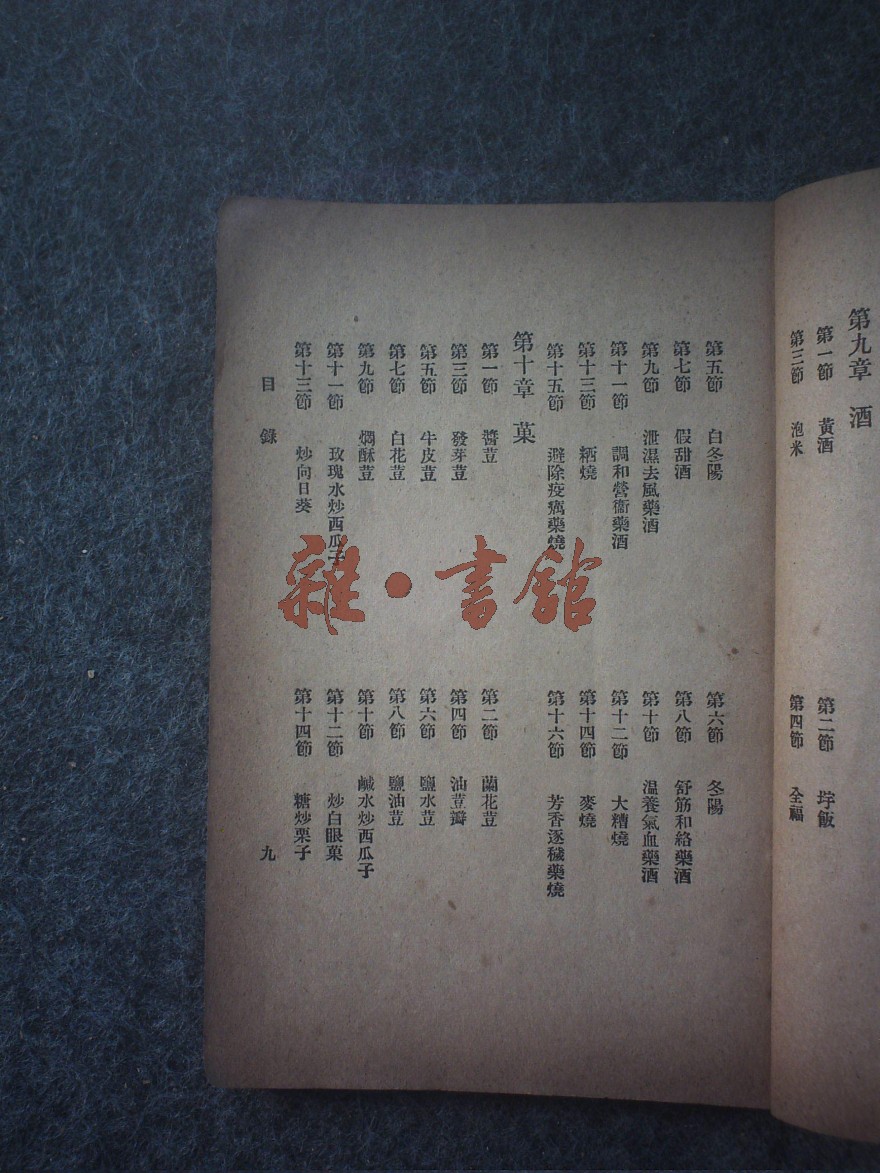 第九章　酒
第一節　黃酒　第二節　垶飯
第三節　泡米　第四節　全福
第五節　白冬陽　第六節　冬陽
第七節　假甜酒　第八節　舒筋和絡藥酒
第九節　泄濕去風藥酒　第十節　温養氣血藥酒
第十一節　調和營衞藥酒　第十二節　大糟燒
第十三節　粞燒　第十四節　麥燒
第十五節　避除疫癘藥燒　第十六節　芳香逐穢藥燒
第十章　菓
第一節　醬荳　第二節　蘭花荳
第三節　發芽荳　第四節　油荳瓣
第五節　牛皮荳　第六節　鹽水荳
第七節　白花荳　第八節　鹽油荳
第九節　燜酥荳　第十節　鹹水炒西瓜子
第十一節　玫瑰水炒西瓜子　第十二節　炒白眼菓
第十三節　炒向日葵　第十四節　糖炒栗子
目錄　九
雜·書館